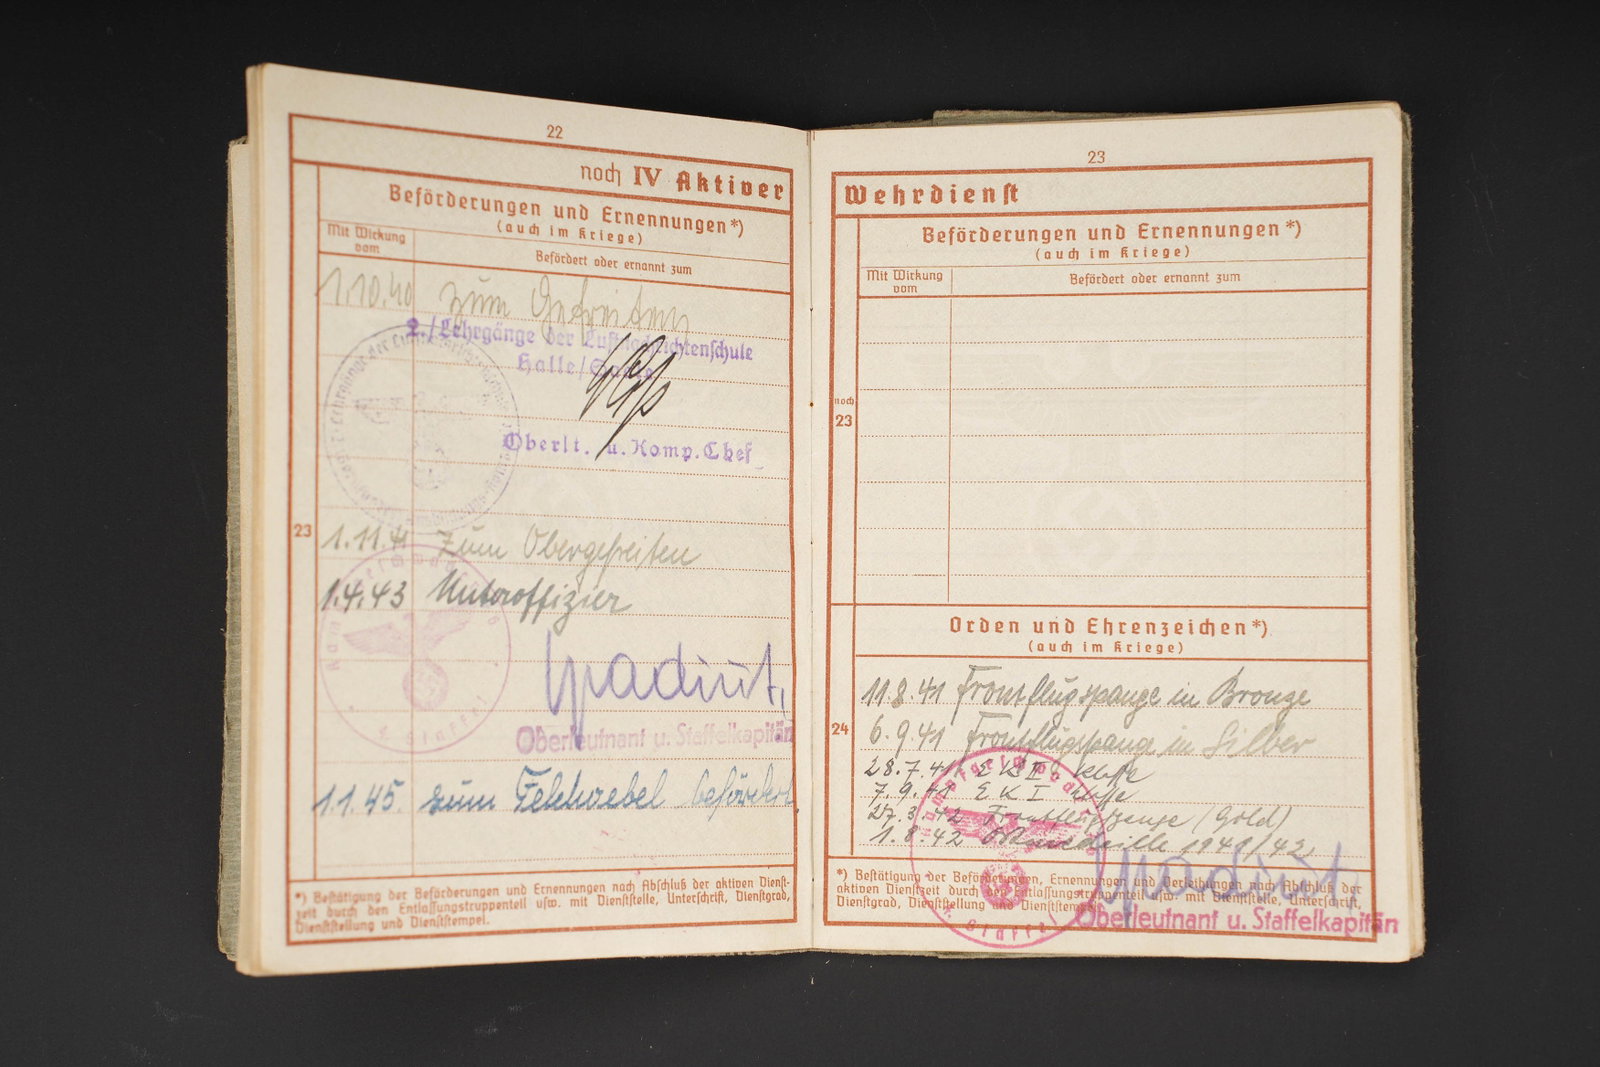 22
noch IV Aktiver
Beförderungen und Ernennungen*)
(auch im Kriege)
Mit Wirkung vom
Befördert oder ernannt zum
1.10.40 zum Gefreiten
2./Lehrgänge der Luftnachrichtenschule
Halle/Saale
Oberlt. u. Komp. Chef
23
1.11.41 zum Obergefreiten
1.4.43 Unteroffizier
Oberleutnant u. Staffelkapitän
1.1.45. zum Feldwebel befördert
*) Bestätigung der Beförderungen und Ernennungen nach Abschluß der aktiven Dienst-
zeit durch den Entlassungstruppenteil usw. mit Dienststelle, Unterschrift, Dienstgrad,
Dienststellung und Dienststempel.
23
Wehrdienst
Beförderungen und Ernennungen*)
(auch im Kriege)
Mit Wirkung vom
Befördert oder ernannt zum
noch
23
Orden und Ehrenzeichen*)
(auch im Kriege)
24
11.8.41 Frontflugspange in Bronze
6.9.41 Frontflugspange in Silber
28.7.41 EK II Klasse
7.9.41 EK I Klasse
27.3.42 Frontflugspange (Gold)
1.8.42 Ostmedaille 1941/42
*) Bestätigung der Beförderungen, Ernennungen und Verleihungen nach Abschluß der
aktiven Dienstzeit durch den Entlassungstruppenteil usw. mit Dienststelle, Unterschrift,
Dienstgrad, Dienststellung und Dienststempel.
Oberleutnant u. Staffelkapitän